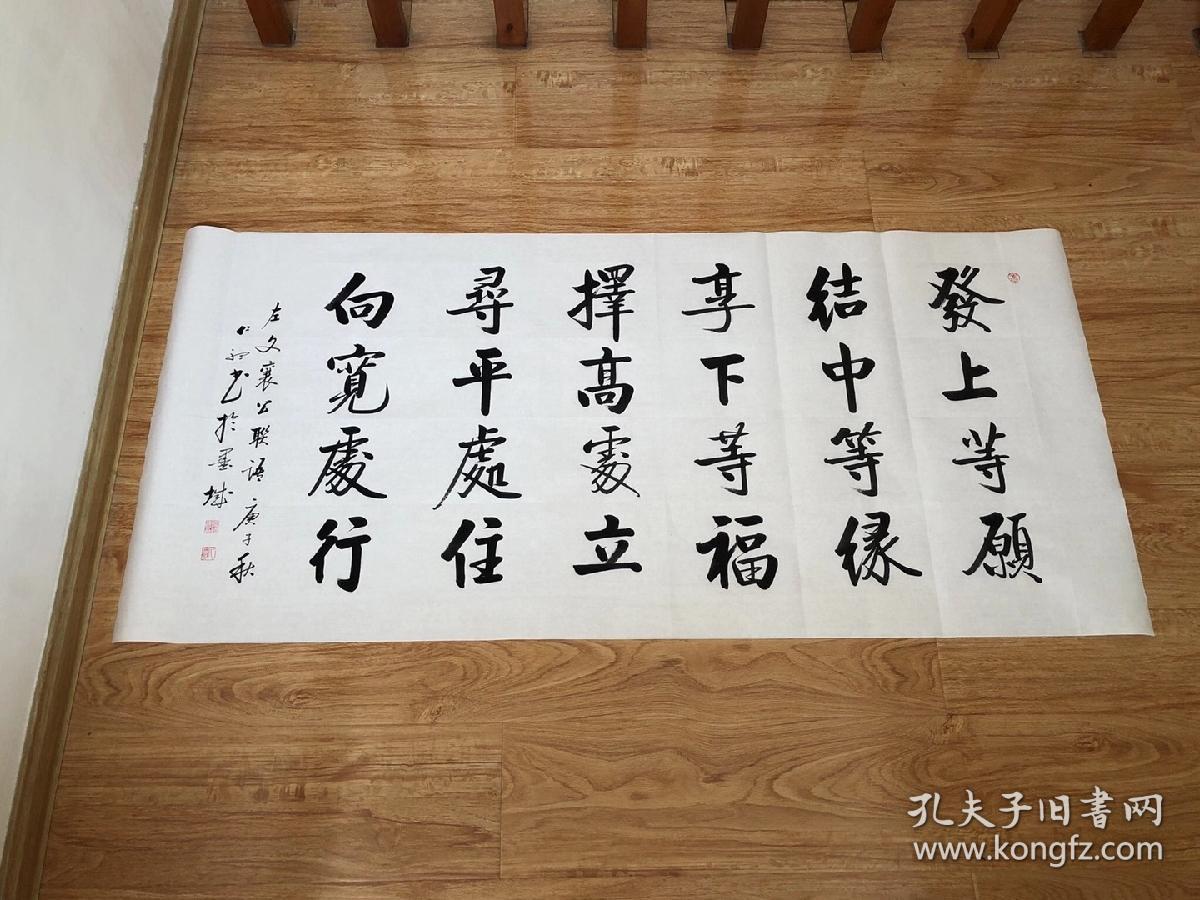 發上等願
結中等緣
享下等福
擇高處立
尋平處住
向寬處行
左文襄公聯語 庚子秋
仁和書於墨城
孔夫子旧書网
www.kongfz.com